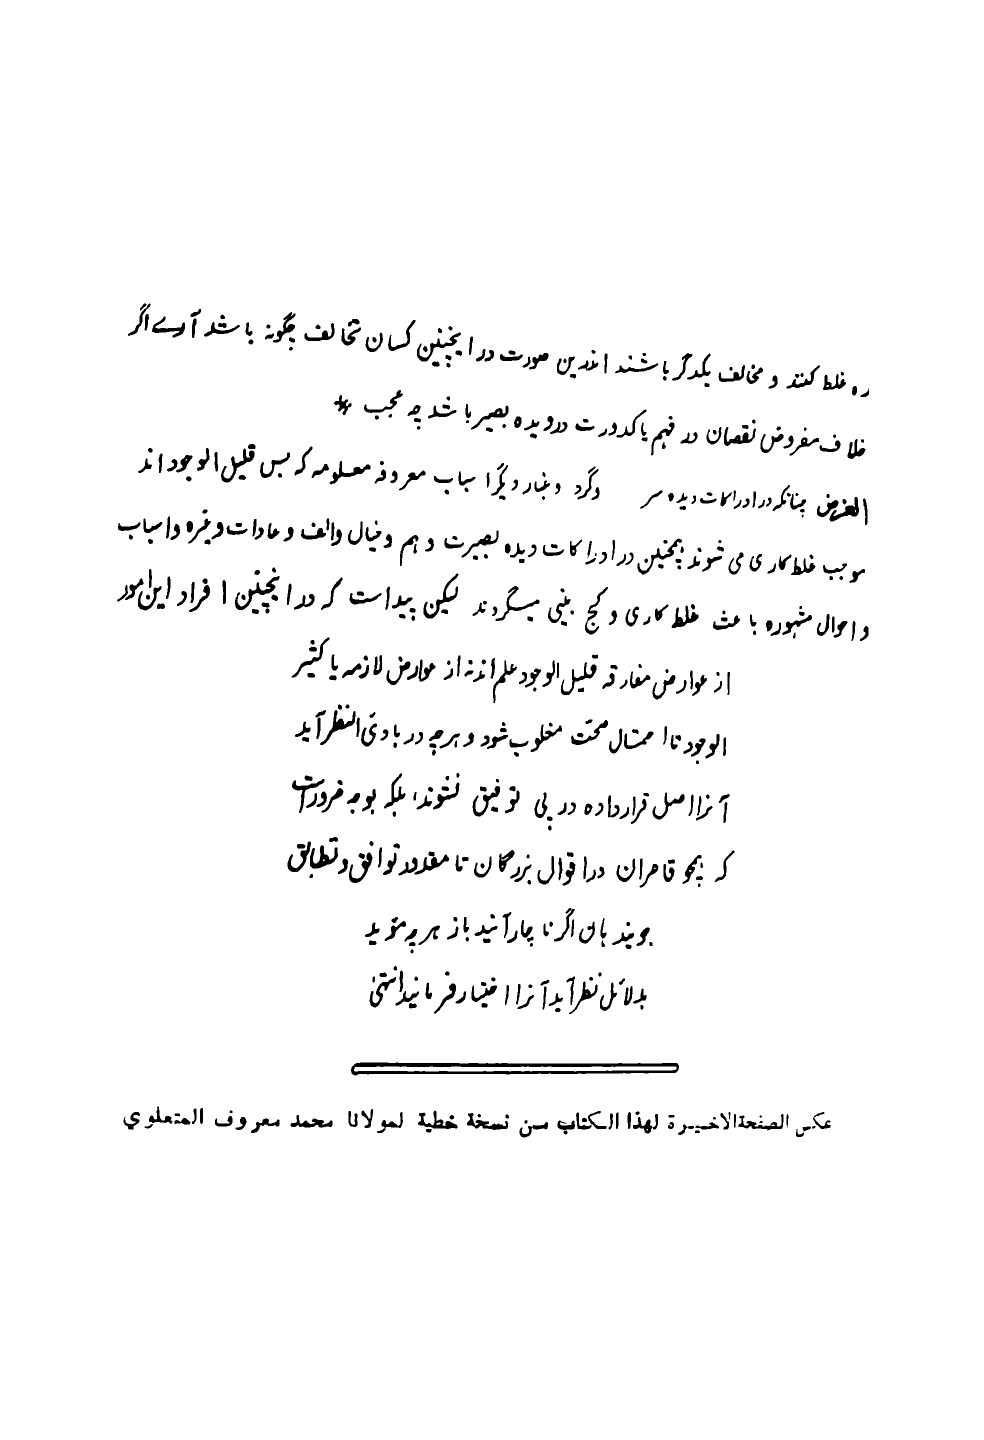 ره غلط کنند و مخالف یکدگر باشند اندرین صورت در اینچنین کسان تخالف چگونه باشد آرے اگر
خلاف مفروض نقصان در فهم یا کدورت در دیده بصیر باشد چه عجب *
الغرض چنانکه در ادراکات دیده سر وگرد وغبار دیگر اسباب معروفه معلومه که بس قلیل الوجود اند
موجب غلط کاری می شوند همچنین در ادراکات دیده بصیرت وهم وخیال والف وعادات وغیره واسباب
واحوال مشهوره باعث غلط کاری وکج بینی میگردند لیکن پیداست که در اینچنین افراد این امور
از عوارض مفارقه قلیل الوجود علم اندنه از عوارض لازمه یا کثیر
الوجود تا احتمال صحت مغلوب شود وهرچه در بادی النظر آید
آنرا اصل قرارداده در پی توفیق نشوند، بلکه بوجه ضرورات
که همچو قاصران در اقوال بزرگان تا مقدور توافق وتطابق
جویند هان اگر ناچار آنید باز هرچه مؤید
بدلائل نظر آید آنرا اختیار فرمانید انتهیٰ
عکس الصفحة الاخیرة لهذا الکتاب من نسخة خطیة لمولانا محمد معروف المتعلوي